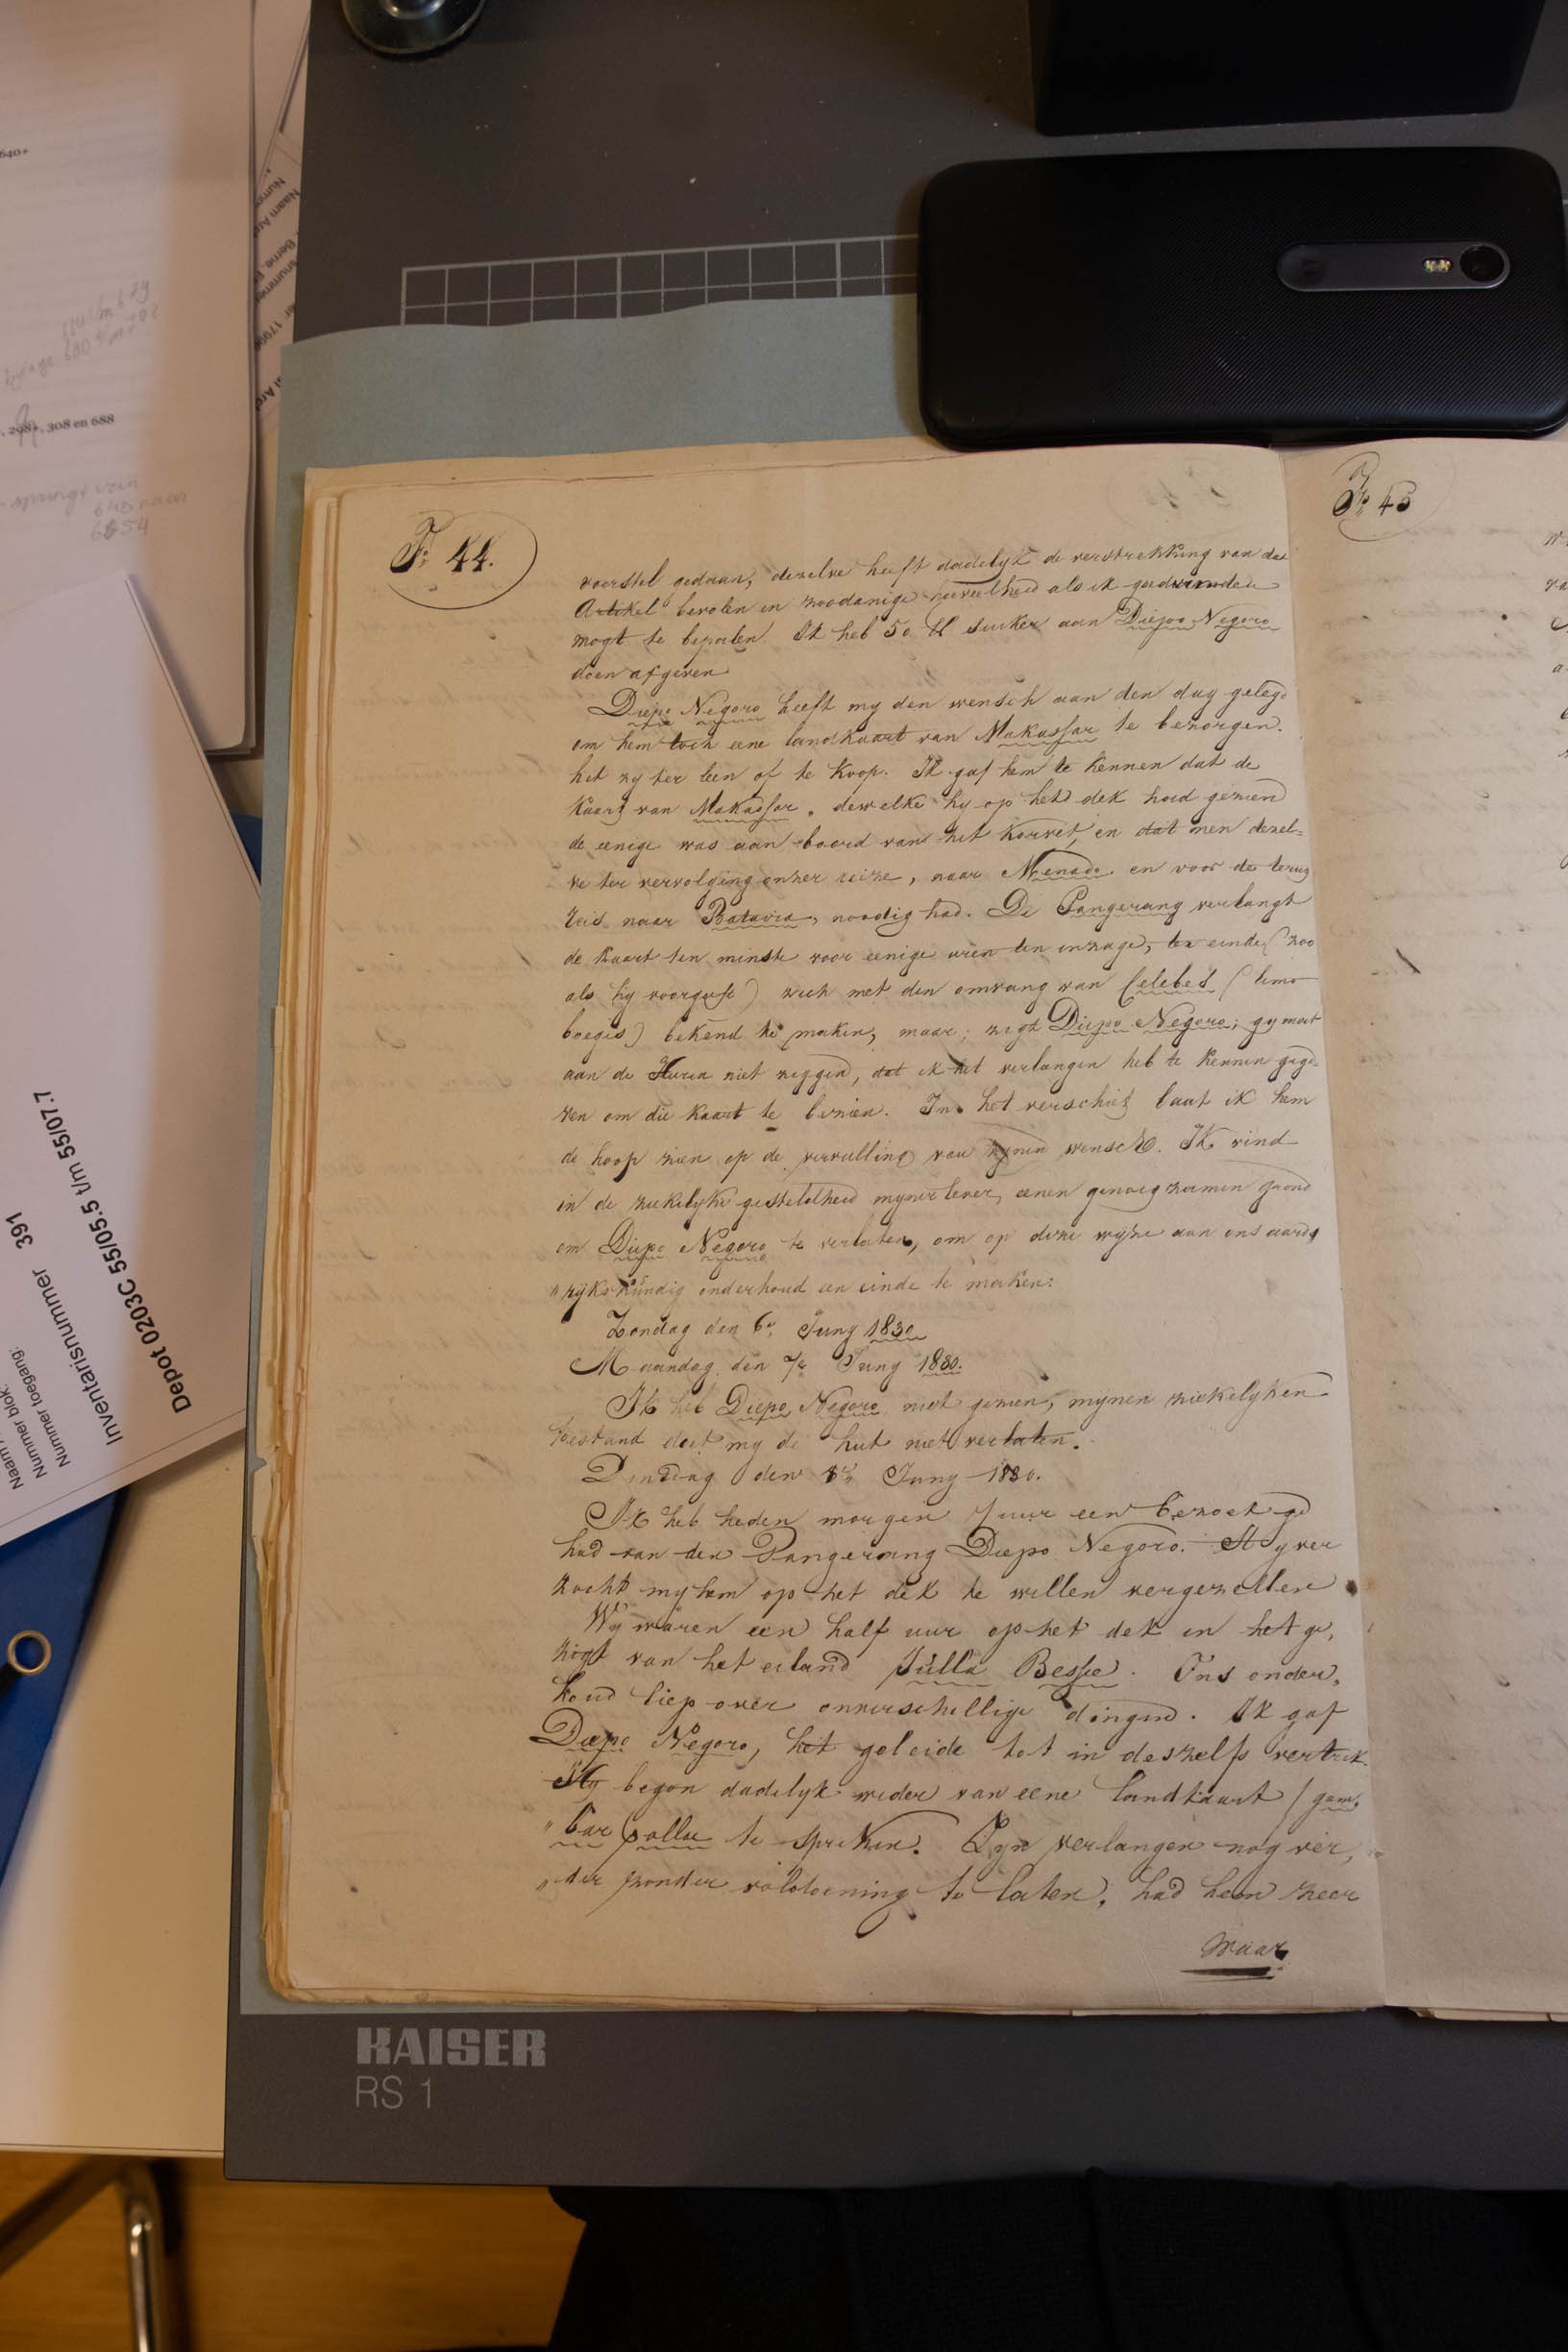 Fo 44.
voorstel gedaan, dezelve heeft dadelyk de verstrekking van dat
Artikel bevolen in zoodanige hoeveelheid als ik goedvinden
mogt te bepalen. Ik heb 50 ℔ suiker aan Diepo Negoro
doen afgeven
Diepo Negoro heeft my den wensch aan den dag gelegd
om hem toch eene landkaart van Makassar te bezorgen.
het zy ter leen of te Koop. Ik gaf hem te kennen dat de
kaart van Makassar, dewelke hy op het dek had gezien
de eenige was aan boord van het Korvet, en dat men dezel=
ve ter vervolging onzer reize, naar Menado en voor de terug
reis naar Batavia, noodig had. De Pangerang verlangt
de kaart ten minste voor eenige uren ten inzage, ten einde (zoo
als hy voorgeeft) zich met den omvang van Celebes (
boegis) bekend te maken, maar; zegt Diepo Negoro; gy moet
aan de Heeren niet zeggen, dat ik het verlangen heb te kennen gege-
ven om die kaart te bezien. In het verschiet laat ik hem
de hoop zien op de vervulling van zynen wensch. Ik vind
in de ziekelyke gesteldheid myner lever, eenen genoegzamen grond
om Diepo Negoro te verlaten, om op deze wyze aan ons aard
"ryks kundig onderhoud een einde te maken:
Zondag den 6e Juny 1830
Maandag den 7e Juny 1830.
Ik heb Diepo Negoro niet gezien, mynen ziekelyken
toestand doet my de hut niet verlaten.
Dinsdag den 8e Juny 1830.
Ik heb heden morgen 7 uur een bezoek ge
had van den Pangerang Diepo Negoro. Hy ver
zocht my hem op het dek te willen vergezellen
Wy waren een half uur op het dek in het ge,
zigt van het eiland Xulla Bessie. Ons onder,
houd liep over onverschillige dingen. Ik gaf
Diepo Negoro, het geleide tot in deszelfs vertrek.
Hy begon dadelyk weder van eene landkaart / gam,
"bar te spreken. Zyn verlangen nog ver,
"der zonder voldoening te laten, had hem zeer
waar
Fo 45
KAISER
RS 1
Inventarisnummer 391
Depot 0203C 55/05.5 t/m 55/07.7
Nummer toegang:
Nummer blok:
, 298+, 308 en 688
640+